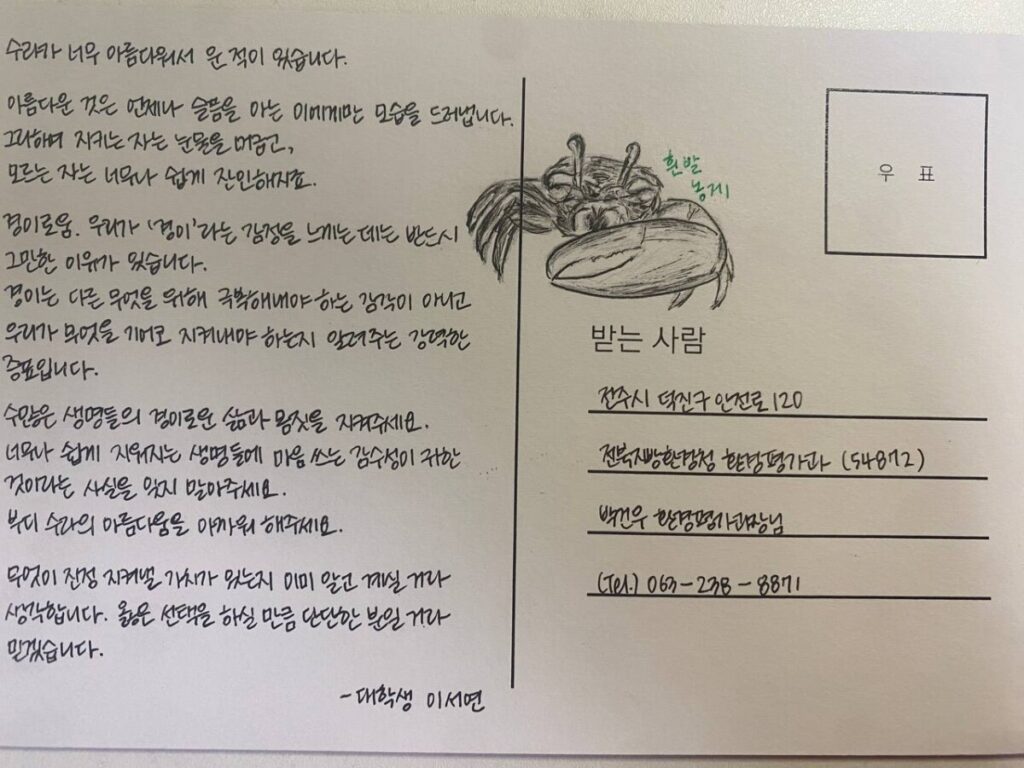 수라가 너무 아름다워서 운 적이 있습니다.
아름다운 것은 언제나 슬픔을 아는 이에게만 모습을 드러냅니다.
그리하여 지키는 자는 눈물을 머금고,
모르는 자는 너무나 쉽게 잔인해지죠.
경이로움. 우리가 '경이'라는 감정을 느끼는 데는 반드시
그만한 이유가 있습니다.
경이는 다른 무엇을 위해 극복해내야 하는 감각이 아니고
우리가 무엇을 기어코 지켜내야 하는지 알려주는 강력한
증표입니다.
수많은 생명들의 경이로운 삶과 몸짓을 지켜주세요.
너무나 쉽게 지워지는 생명들에 마음 쓰는 감수성이 귀한
것이라는 사실을 잊지 말아주세요.
부디 수라의 아름다움을 아까워 해주세요.
무엇이 진정 지켜낼 가치가 있는지 이미 알고 계실 거라
생각합니다. 옳은 선택을 하실 만큼 단단한 분일 거라
믿겠습니다.
- 대학생 이서연
흰발
농게
우 표
받는 사람
전주시 덕진구 안전로 120
전북지방환경청 환경평가과 (54872)
박건우 환경평가과장님
(Tel.) 063-238-8871